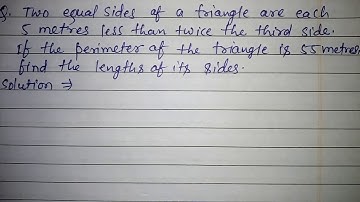 Q. Two equal sides of a triangle are each
5 metres less than twice the third side.
If the perimeter of the triangle is 55 metres,
find the lengths of its sides.
Solution ⇒